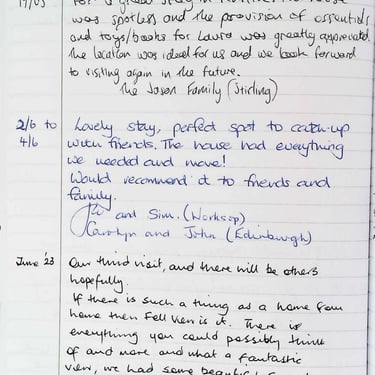 17/05
was spotless and the provision of essentials
and toys/books for Laura was greatly appreciated.
The location was ideal for us and we look forward
to visiting again in the future.
The Jason Family (Stirling)
2/6 to
4/6
Lovely stay, perfect spot to catch-up
with friends. The house had everything
we needed and more!
Would recommend it to friends and
family.
and Sim. (Worksop)
Carolyn and John (Edinburgh)
June '23
Our third visit, and there will be others
hopefully.
If there is such a thing as a home from
home then Fell View is it. There is
everything you could possibly think
of and more and what a fantastic
view, we had some beautiful